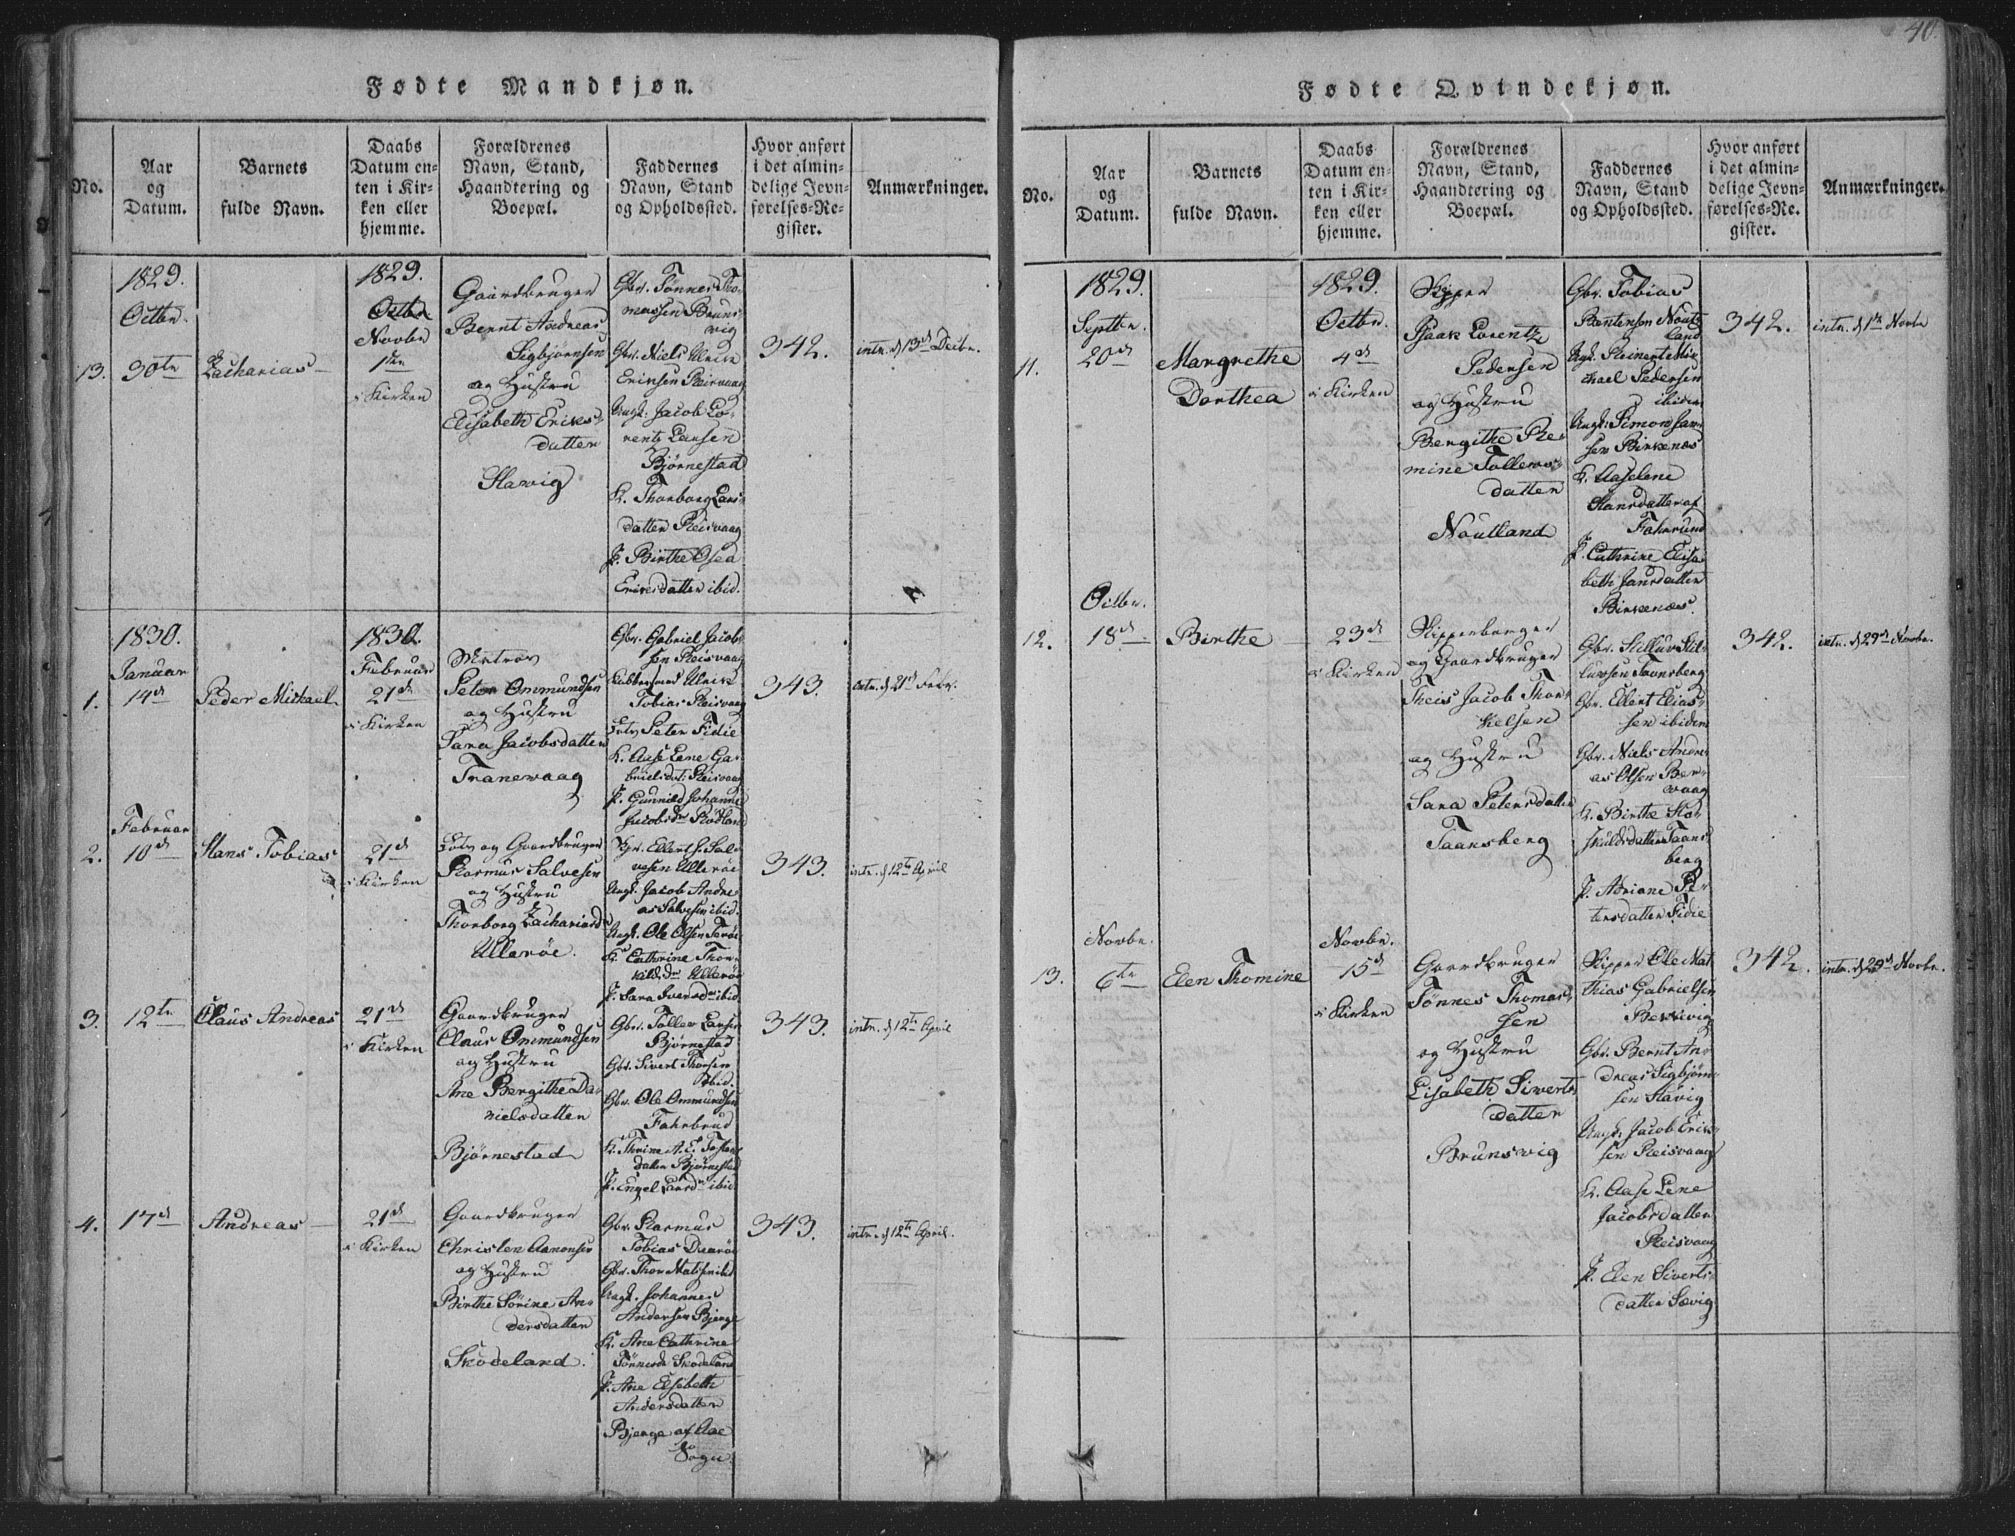 40.
Fødte Mandkjøn.
No.
Aar
og
Datum.
Barnets
fulde Navn.
Daabs
Datum en-
ten i Kir-
ken eller
hjemme.
Forældrenes
Navn, Stand,
Haandtering og
Boepæl.
Faddernes
Navn, Stand
og Opholdssted.
Hvor anført
i det almin-
delige Jevn-
førelses-Re-
gister.
Anmærkninger.
13.
1829.
Octbr.
30te
Zacharias
1829.
Octbr
Novbr
1ste
i Kirken
Gaardbruger
Bernt Andreas
Sigbjørnsen
og Hustru
Elisabeth Eriks-
datter
Slavig
Gbr. Tønnes Tho-
massen Bruns-
vig
Gbr. Niels Ulrik
Eriksen Reisvaag
Ungk. Jacob Lo-
rentz Larsen
Bjørnestad
K. Thorborg Lars-
datter Reisvaag
P. Birthe Osea
Eriksdatter ibid.
342.
intr. d. 13de Decbr.
1.
1830.
Januar
14d
Peder Michael
1830.
Februar
21de
i Kirken
Matros
Peter Ommundsen
og Hustru
Sara Jacobsdatter
Tranevaag
Gbr. Gabriel Jacob-
sen Reisvaag
Ulrik
Tobias Reisvaag
Lods Peter Fidie
K. Aase Lene Ga-
brielsdt: Reisvaag
P. Gunnild Johanne
Jacobsdr Rødland
343.
intr. d. 21d Febr.
2.
Februar
10d
Hans Tobias
21de
i Kirken
Lods og Gaardbruger
Rasmus Salvesen
og Hustru
Thorborg Zachariasdr
Ullerøe.
Gbr. Ellert S. Sal-
vesen Ullerøe
Ungk. Jacob Andre-
as Salvesen ibid.
Ungk. Ole Olsen Farøe
K. Cathrine Thor-
kildsdr Ullerøe
P. Sara Iversdr ibid.
343.
intr. d. 12te April
3.
12te
Claus Andreas
21de
i Kirken
Gaardbruger
Claus Ommundsen
og Hustru
Ane Bergithe Da-
nielsdatter
Bjørnestad
Gbr. Tollev Larsen
Bjørnestad
Gbr. Sivert Thorsen
ibid.
Gbr. Ole Ommundsen
Fahrbrud
K. Thrine A. E. Tostens
datter Bjørnestad
P. Engel Larsdr ibid.
343.
intr. d. 12te April
4.
17d
Andreas
21de
i Kirken
Gaardbruger
Christen Aamonsen
og Hustru
Birthe Sørine An-
dersdatter
Skodeland.
Gbr. Rasmus
Tobias Daarøe
Gbr. Thor Matisen ibid
Ungk. Johannes
Andersen Bjerge
K. Ane Cathrine
Tønnesdr Skodeland
P. Ane Elsebeth
Andersdatter
Bjerge af Aae
Sogn.
343.
intr. d. 12te April.
Fødte Qvindekjøn.
No.
Aar
og
Datum.
Barnets
fulde Navn.
Daabs
Datum en-
ten i Kir-
ken eller
hjemme.
Forældrenes
Navn, Stand,
Haandtering og
Boepæl.
Faddernes
Navn, Stand
og Opholdssted.
Hvor anført
i det almin-
delige Jevn-
førelses-Re.
gister.
Anmærkninger.
11.
1829.
Septbr.
20d
Margrethe
Dorthea
1829.
Octbr.
4d
i Kirken
Skipper
Isaak Lorentz
Pedersen
og Hustru
Bergithe Re-
mine Tollevs-
datter
Noutland
Gbr. Tobias
Berntensen Nout-
land
Ungk. Reinert Mi-
chael Pedersen
ibidem
Ungk. Simon Jan-
sen Birkenæs
K. Aaselene
Hansdatter af
Fahrsund
P. Cathrine Elisa-
beth Jansdatter
Birkenæs.
342.
intr. d. 1ste Novbr
12.
Octbr.
18d
Birthe
23d
i Kirken
Skipperborger
og Gaardbruger
Theis Jacob Thor-
kelsen
og Hustru
Sara Petersdatter
Taansberg
Gbr. Stilluv Stil-
luvsen Taansberg
Gbr. Ellert Elias-
sen ibidem
Gbr. Niels Andre-
as Olsen Ber-
vaag
K. Birthe
Taans-
berg
P. Adriane Pe-
tersdatter Fidie
342.
intr. d. 29de Novbr.
13.
Novbr.
6te
Elen Thomine
Novbr.
15d
i Kirken
Gaardbruger
Tønnes Thomas-
sen
og Hustru
Lisabeth Siverts-
datter
Brunsvig
Skipper Ole Mat-
thias Gabrielsen
Berrivig
Gbr. Bernt An-
dreas Sigbjørn-
sen Slavig
Ungk. Jacob Erik-
sen Reisvaag
K. Aase Lene
Jacobsdatter
Reisvaag
P. Elen Siverts-
datter Sævig
342.
intr. d. 29de Novbr.